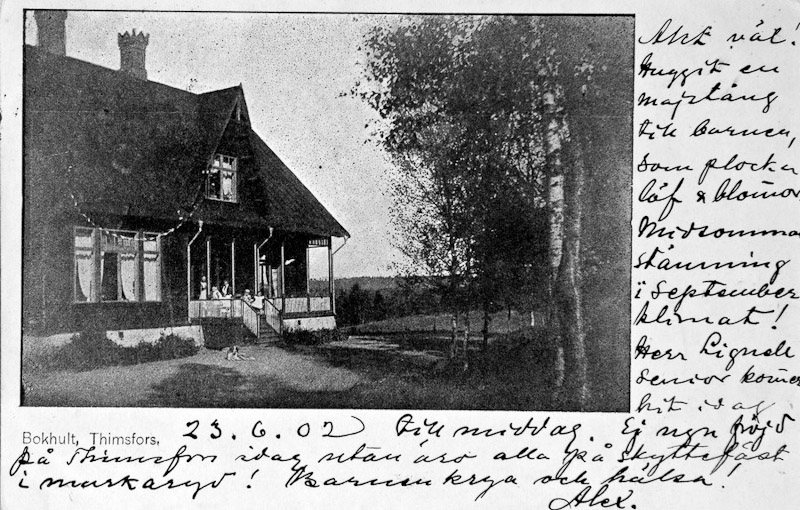 Allt väl!
Huggit en
majstång
till barnen,
som plocka
löf & blomor
Midsommar
stämning
i September
klimat!
Herr Lignell
senior kommer
hit idag
Bokhult, Thimsfors.
23.6.02 till middag. Ej ngn fröjd
på Thimsfors idag utan äro alla på skyttefäst
i Markaryd! Barnen krya och hälsa!
Alex.